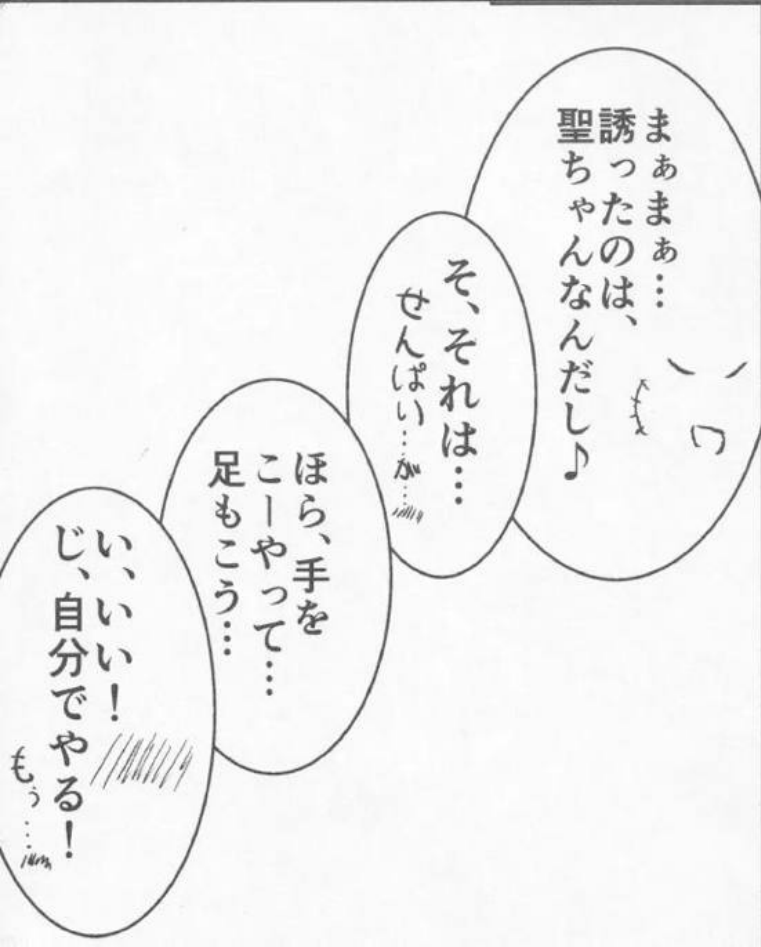 まぁまぁ…
誘ったのは、
聖ちゃんなんだし♪
そ、それは…
せんぱい…が…
ほら、手を
こーやって…
足もこう…
い、いい！
じ、自分でやる！
もぅ…